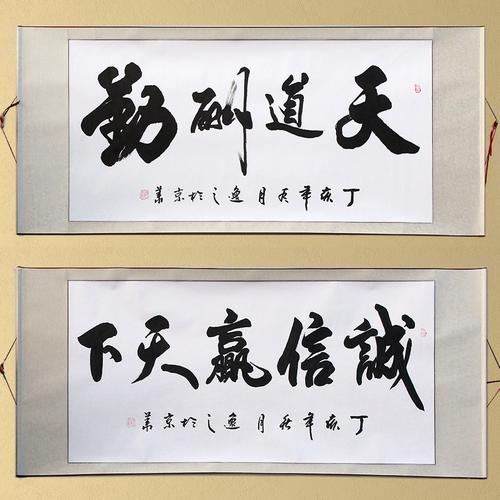 天道酬勤
丁亥年月逸之於京華
誠信贏天下
丁亥年月逸之於京華